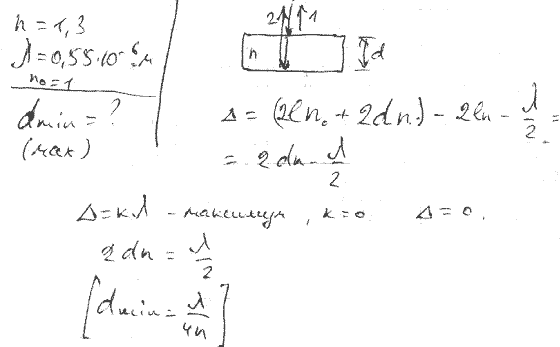 n = 1,3
λ = 0,55·10⁻⁶ м
n₀ = 1
dmin = ?
(мак)
2 1
n d
Δ = (2ln₀ + 2dn) - 2ln - λ/2 =
= 2dn - λ/2
Δ = kλ - максимум, k=0 Δ = 0.
2dn = λ/2
[dmin = λ/4n]